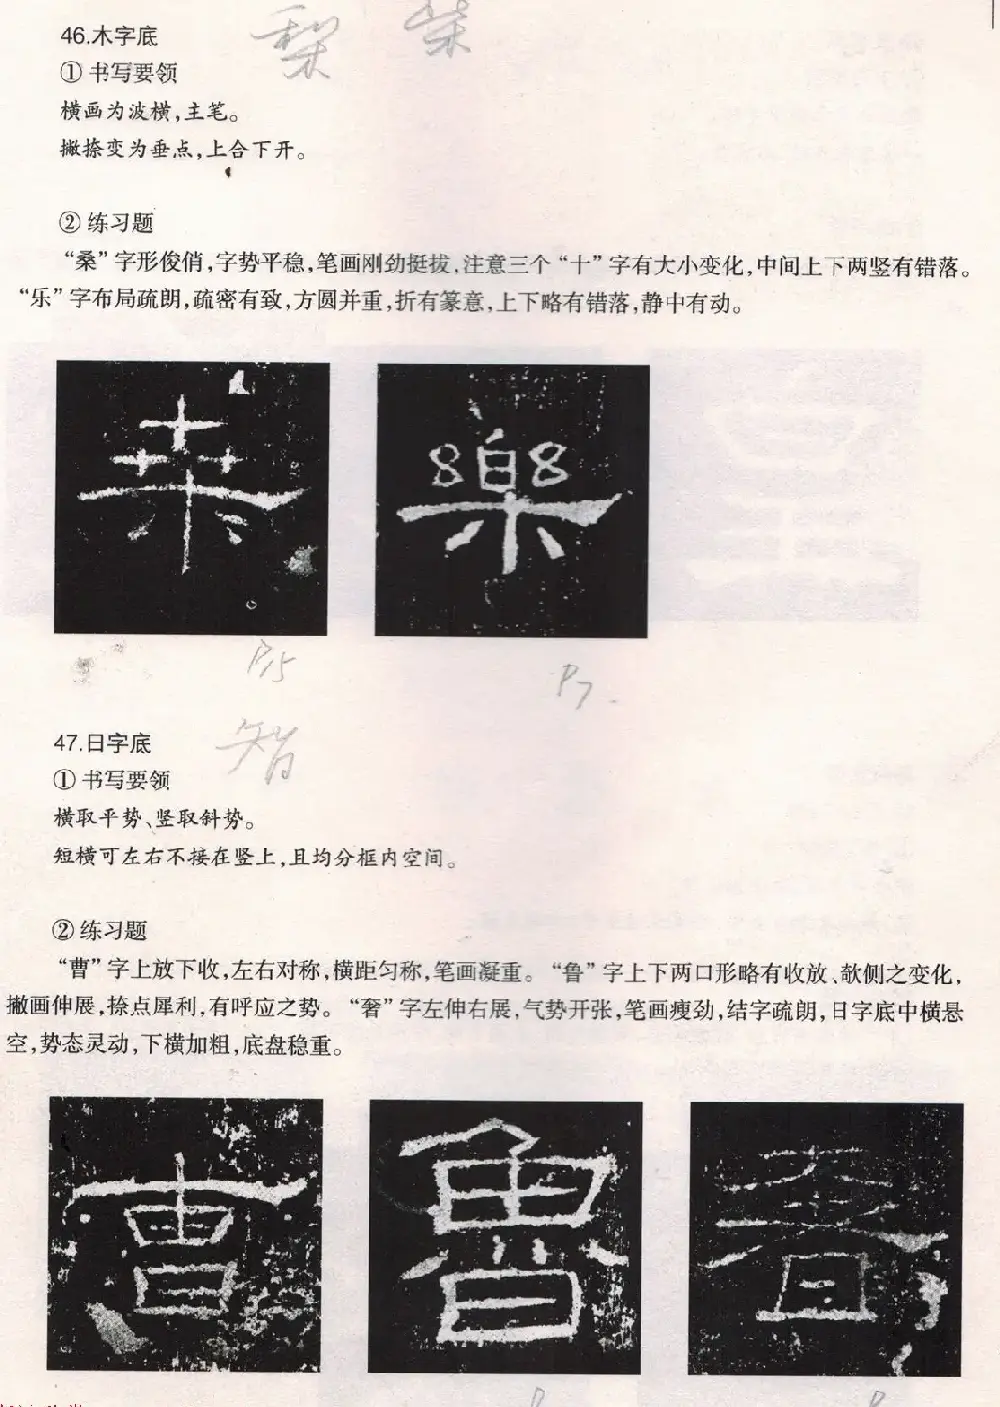 梨 柴
46.木字底
① 书写要领
横画为波横,主笔。
撇捺变为垂点,上合下开。
② 练习题
“桑”字形俊俏,字势平稳,笔画刚劲挺拔,注意三个“十”字有大小变化,中间上下两竖有错落。
“乐”字布局疏朗,疏密有致,方圆并重,折有篆意,上下略有错落,静中有动。
桑 樂
P15 P7
智
47.日字底
① 书写要领
横取平势、竖取斜势。
短横可左右不接在竖上,且均分框内空间。
② 练习题
“曹”字上放下收,左右对称,横距匀称,笔画凝重。“鲁”字上下两口形略有收放、欹侧之变化,
撇画伸展,捺点犀利,有呼应之势。“奢”字左伸右展,气势开张,笔画瘦劲,结字疏朗,日字底中横悬
空,势态灵动,下横加粗,底盘稳重。
曹 魯 奢